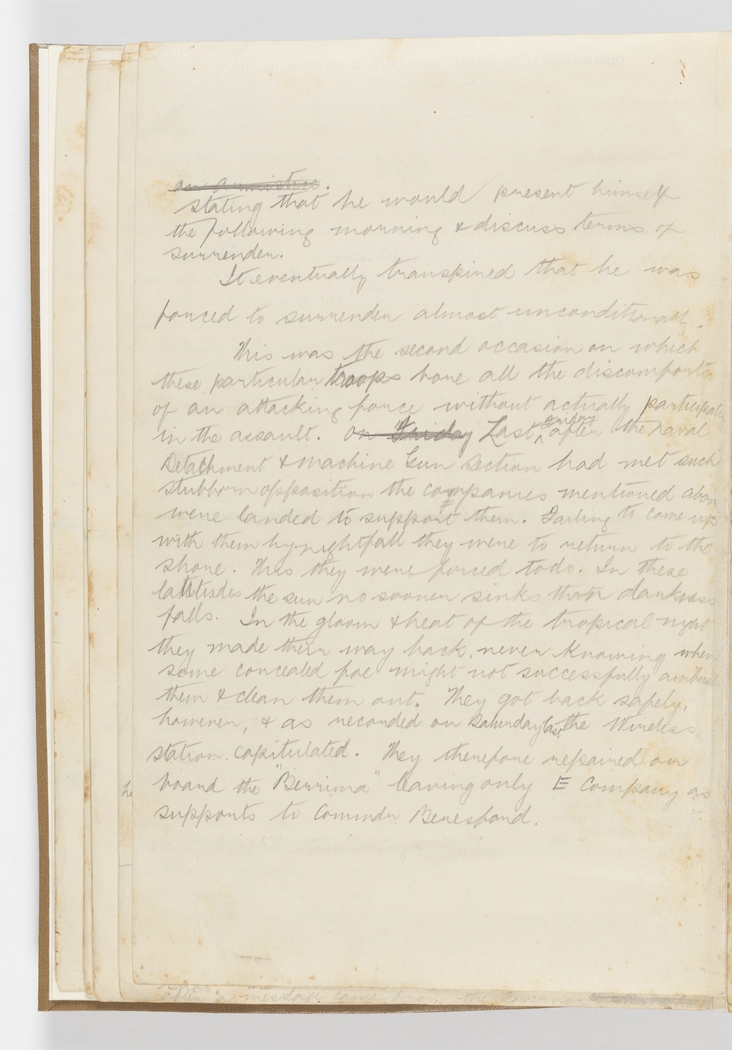 an armistice.
stating that he would present himself
the following morning & discuss terms of
surrender.
It eventually transpired that he was
forced to surrender almost unconditionally.
This was the second occasion on which
these particular troops bore all the discomforts
of an attacking force without actually participating
in the assault. On Friday Last Friday after the naval
Detachment & Machine Gun Section had met such
stubborn opposition the companies mentioned above
were landed to support them. Failing to come up
with them by nightfall they were to return to the
shore. This they were forced to do. In these
latitudes the sun no sooner sinks than darkness
falls. In the gloom & heat of the tropical night
they made their way back, never knowing when
some concealed foe might not successfully ambush
them & clean them out. They got back safely,
however, & as recorded on Saturday last the Wireless
station capitulated. They therefore repaired on
board the "Berrima" leaving only E Company as
supports to Commdr Beresford.
a message came from the Governor